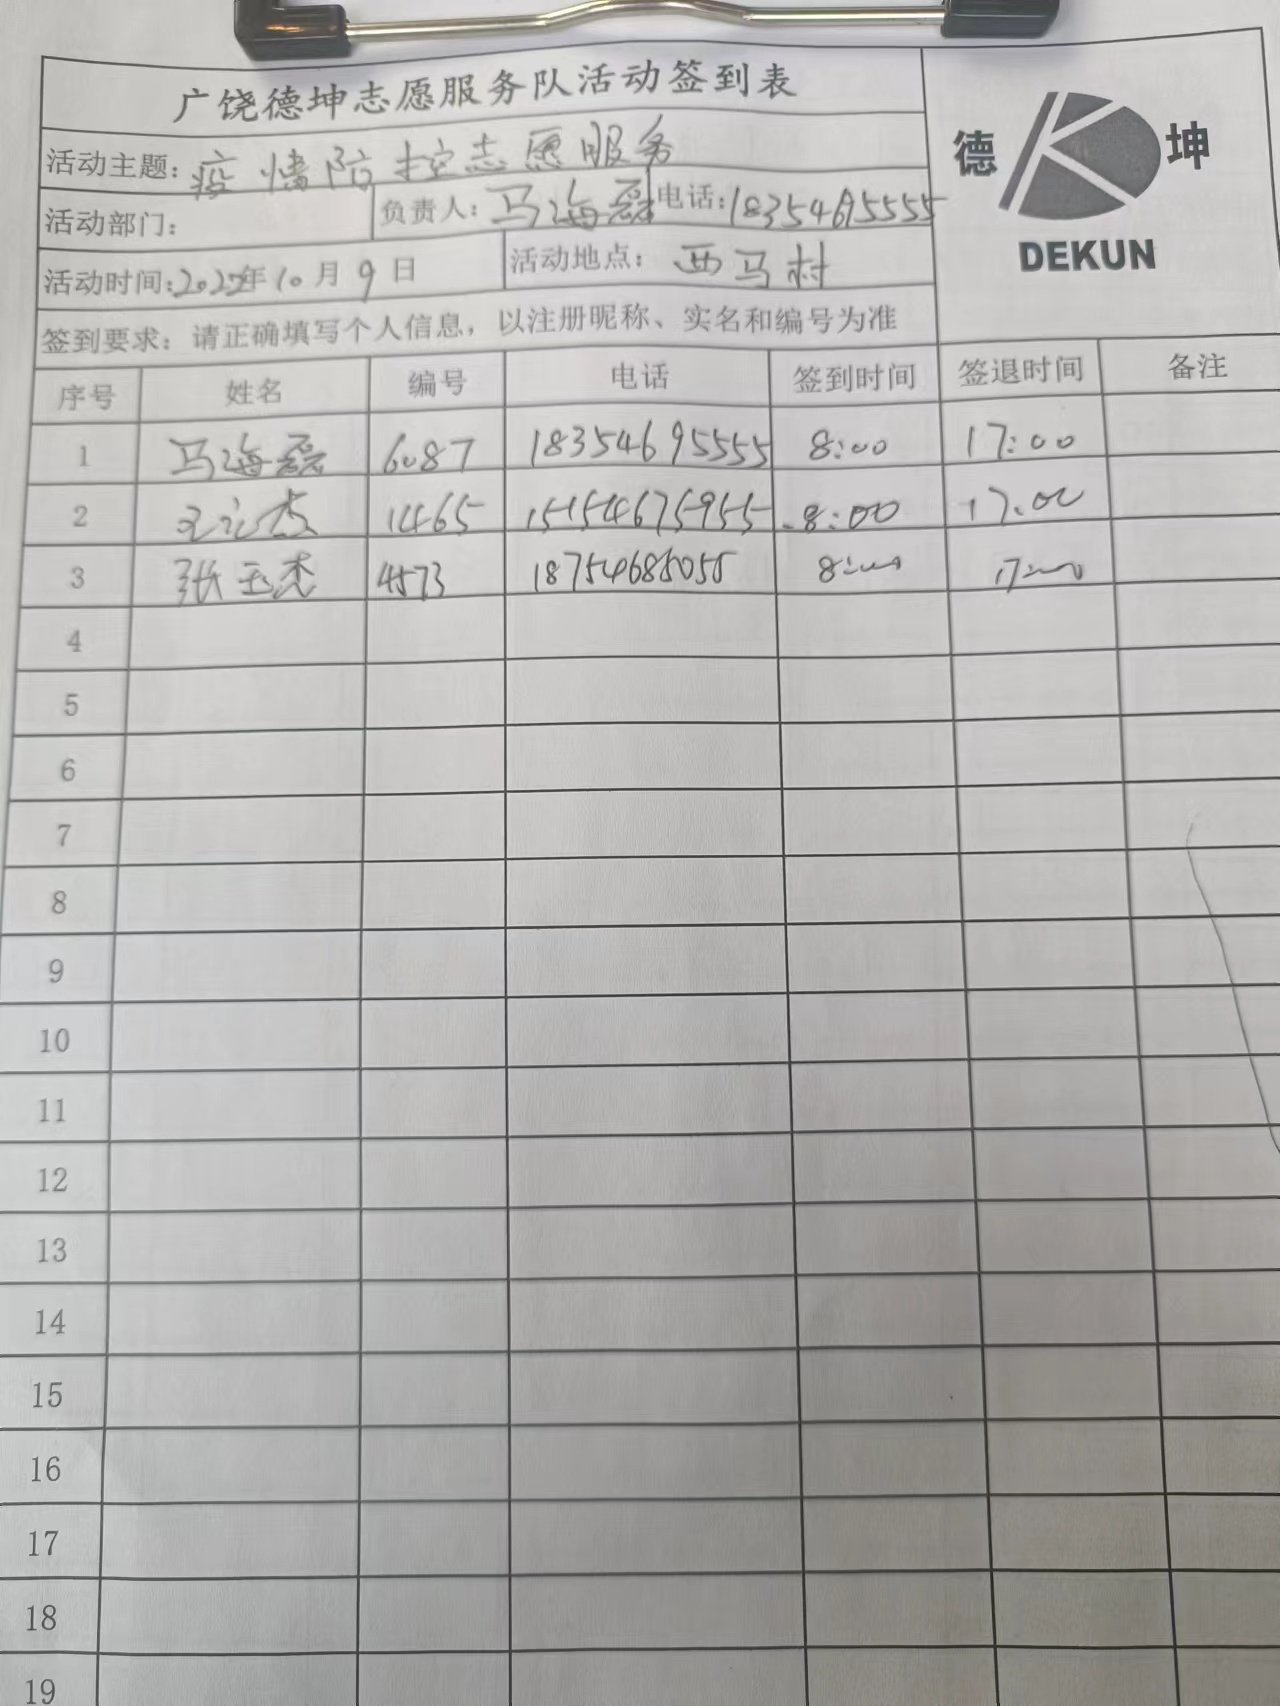 广饶德坤志愿服务队活动签到表
德 坤
DEKUN
活动主题：疫情防控志愿服务
活动部门： 负责人：马海磊 电话：18354695555
活动时间：2022年10月9日 活动地点：西马村
签到要求：请正确填写个人信息，以注册昵称、实名和编号为准
序号 姓名 编号 电话 签到时间 签退时间 备注
1 马海磊 6087 18354695555 8:00 17:00
2 1465 15154675955 8:00 17:00
3 张玉杰 4573 18754685055 8:00 17:00
4
5
6
7
8
9
10
11
12
13
14
15
16
17
18
19